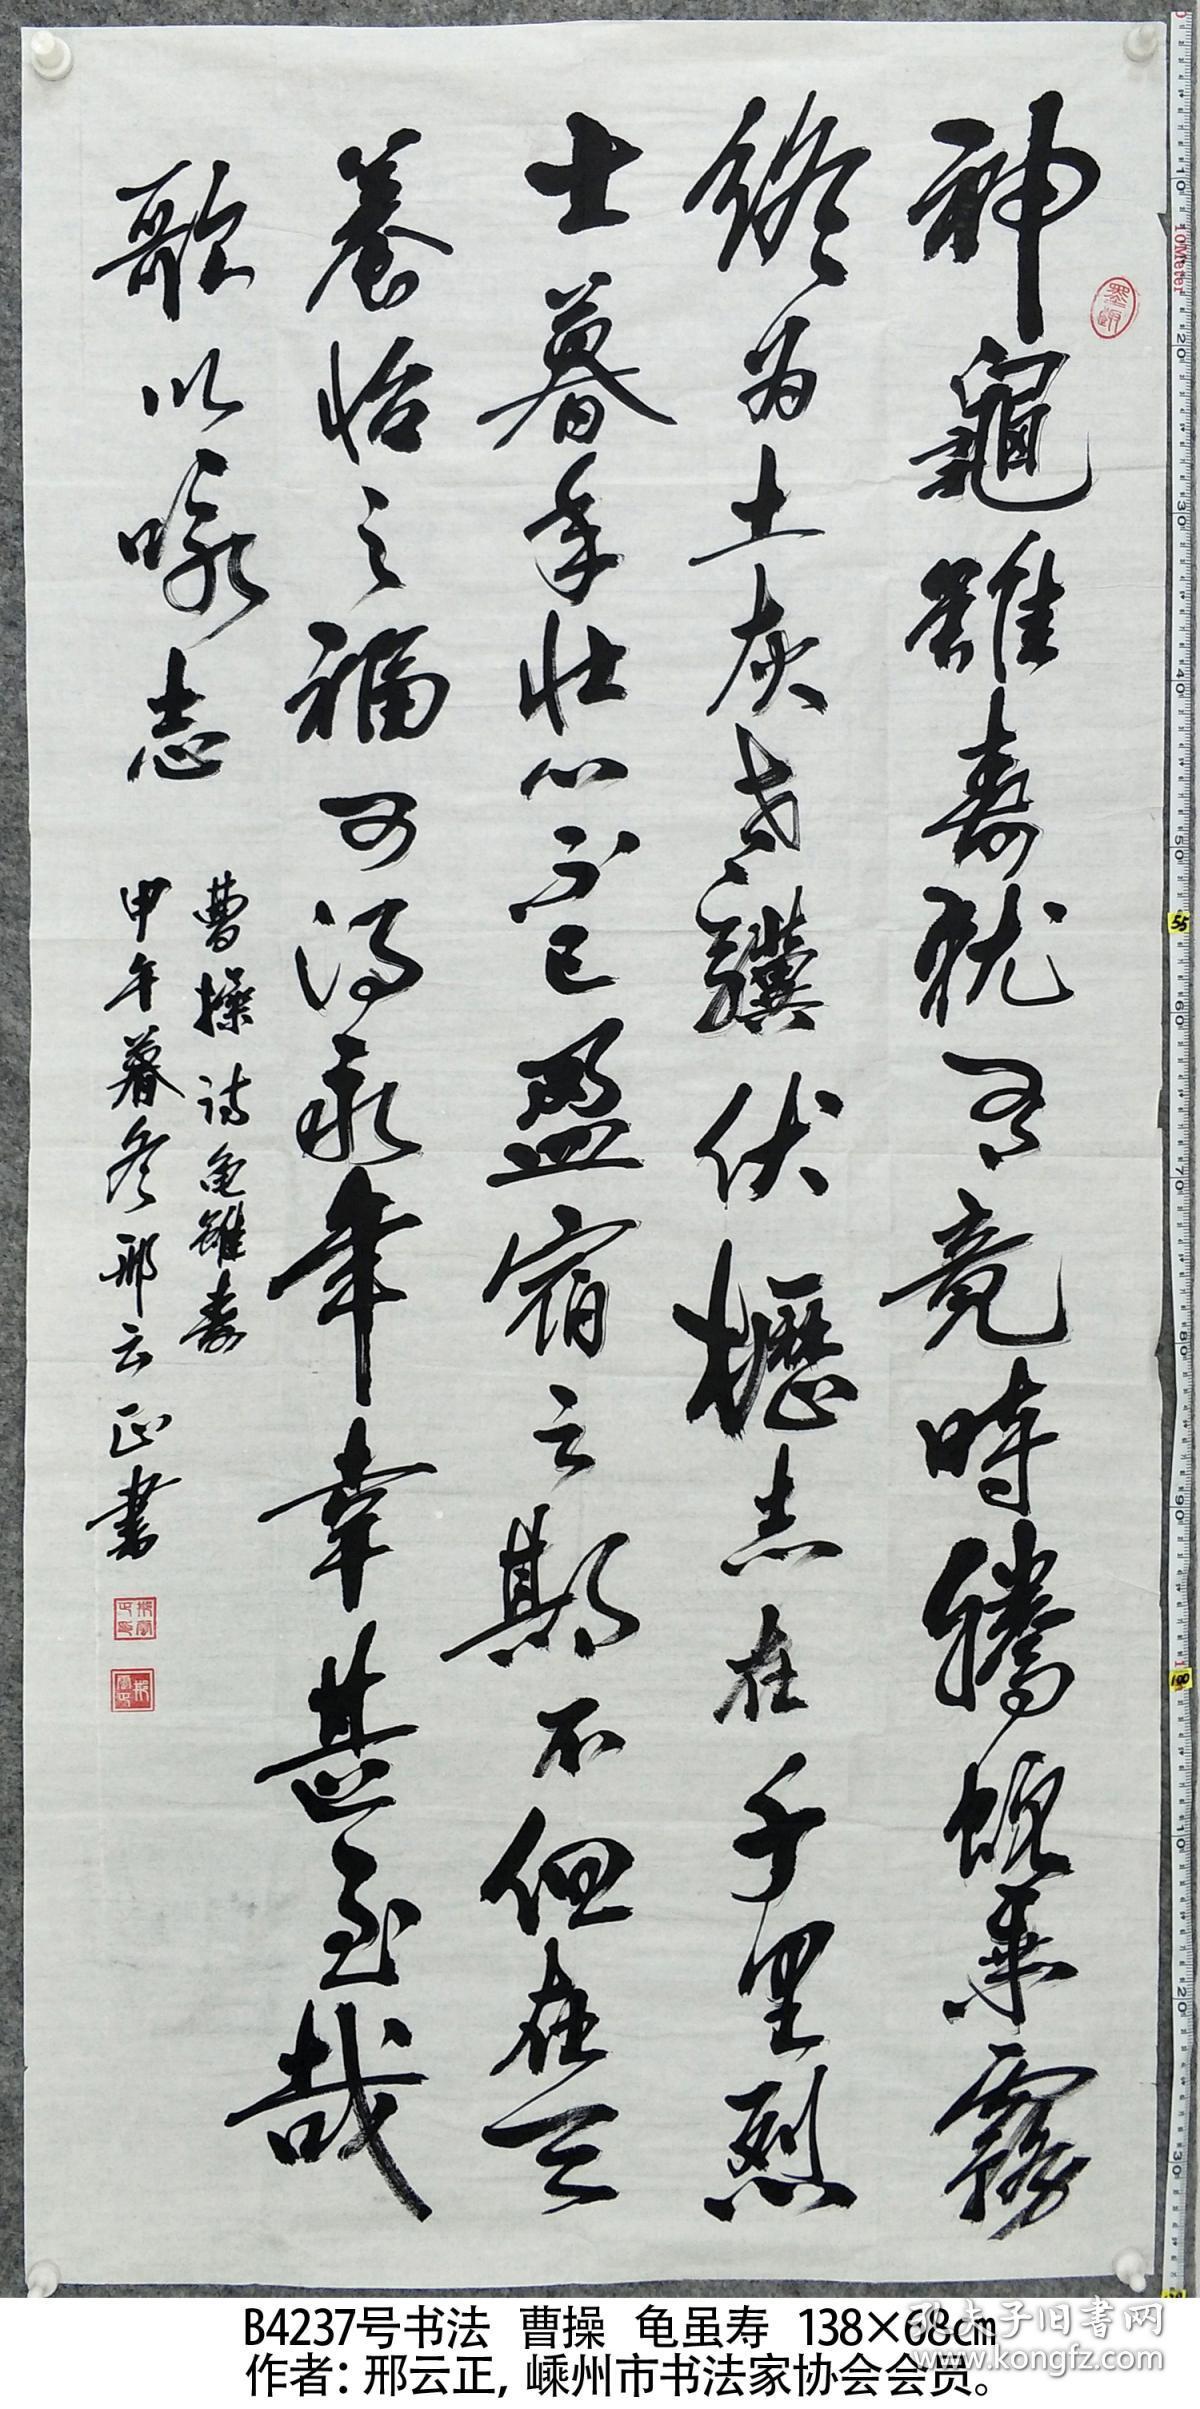 神龜雖壽猶有竟時騰蛇乘霧
終为土灰老驥伏櫪志在千里烈
士暮年壯心不已盈宿之期不但在天
養怡之福可得永年幸甚至哉
歌以咏志
曹操诗龟雖寿
甲午暮冬邢云正書
10Meter
B4237号书法 曹操 龟虽寿 138×68㎝
作者：邢云正，嵊州市书法家协会会员。
孔夫子旧书网
www.kongfz.com